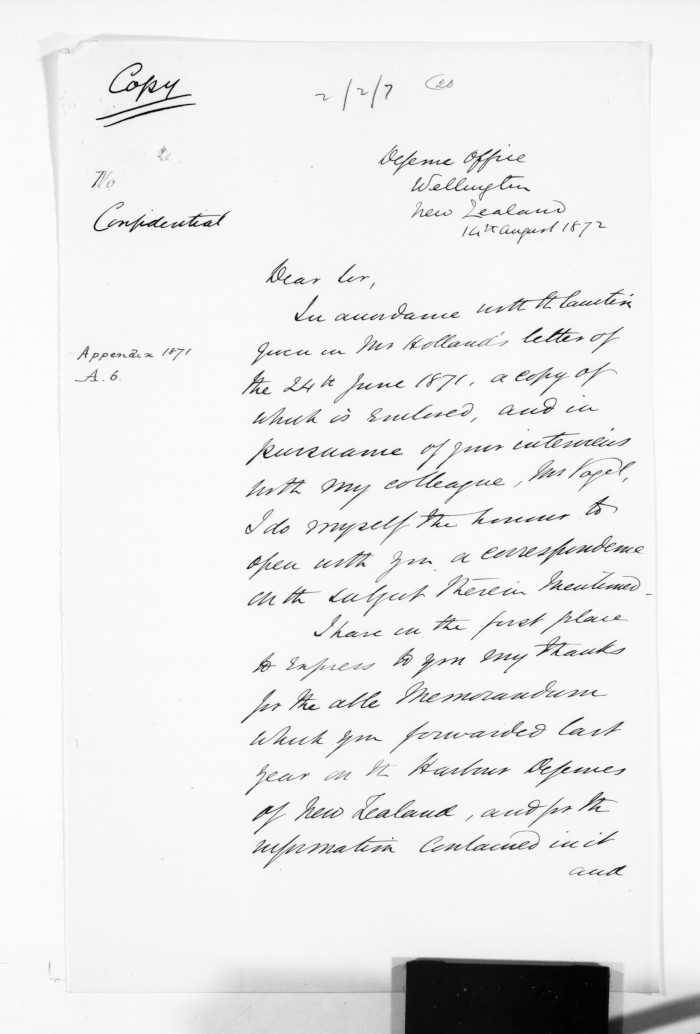 Copy
2/2/7
No
Confidential
Defence Office
Wellington
New Zealand
14th August 1872
Dear Sir,
In accordance with the
Appendix 1871
A. 6.
given in Mr Holland's letter of
the 24th June 1871, a copy of
which is enclosed, and in
pursuance of your interviews
with my colleague, Mr Vogel,
I do myself the honour to
open with you a correspondence
on the subject therein mentioned –
I have in the first place
to express to you my thanks
for the able Memorandum
which you forwarded last
year on the Harbour Defences
of New Zealand, and for the
information contained in it
and